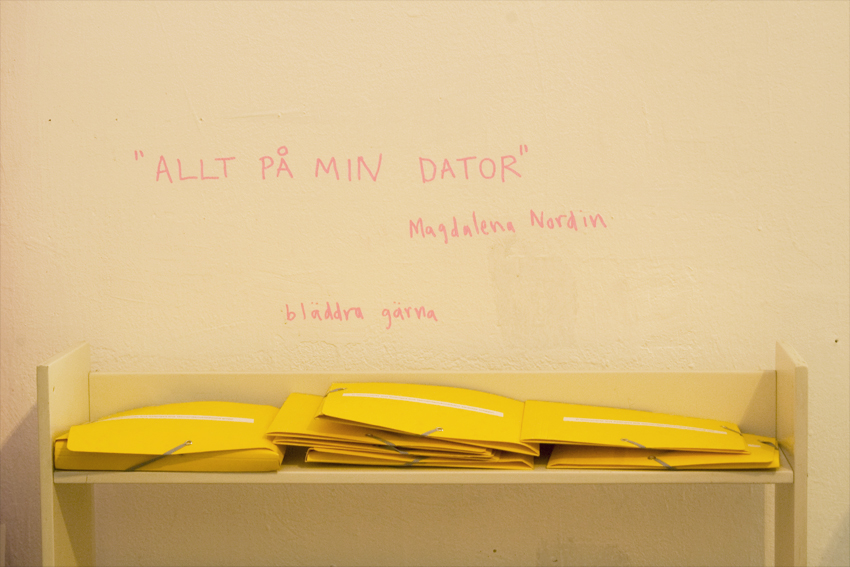 "ALLT PÅ MIN DATOR"
Magdalena Nordin
bläddra gärna